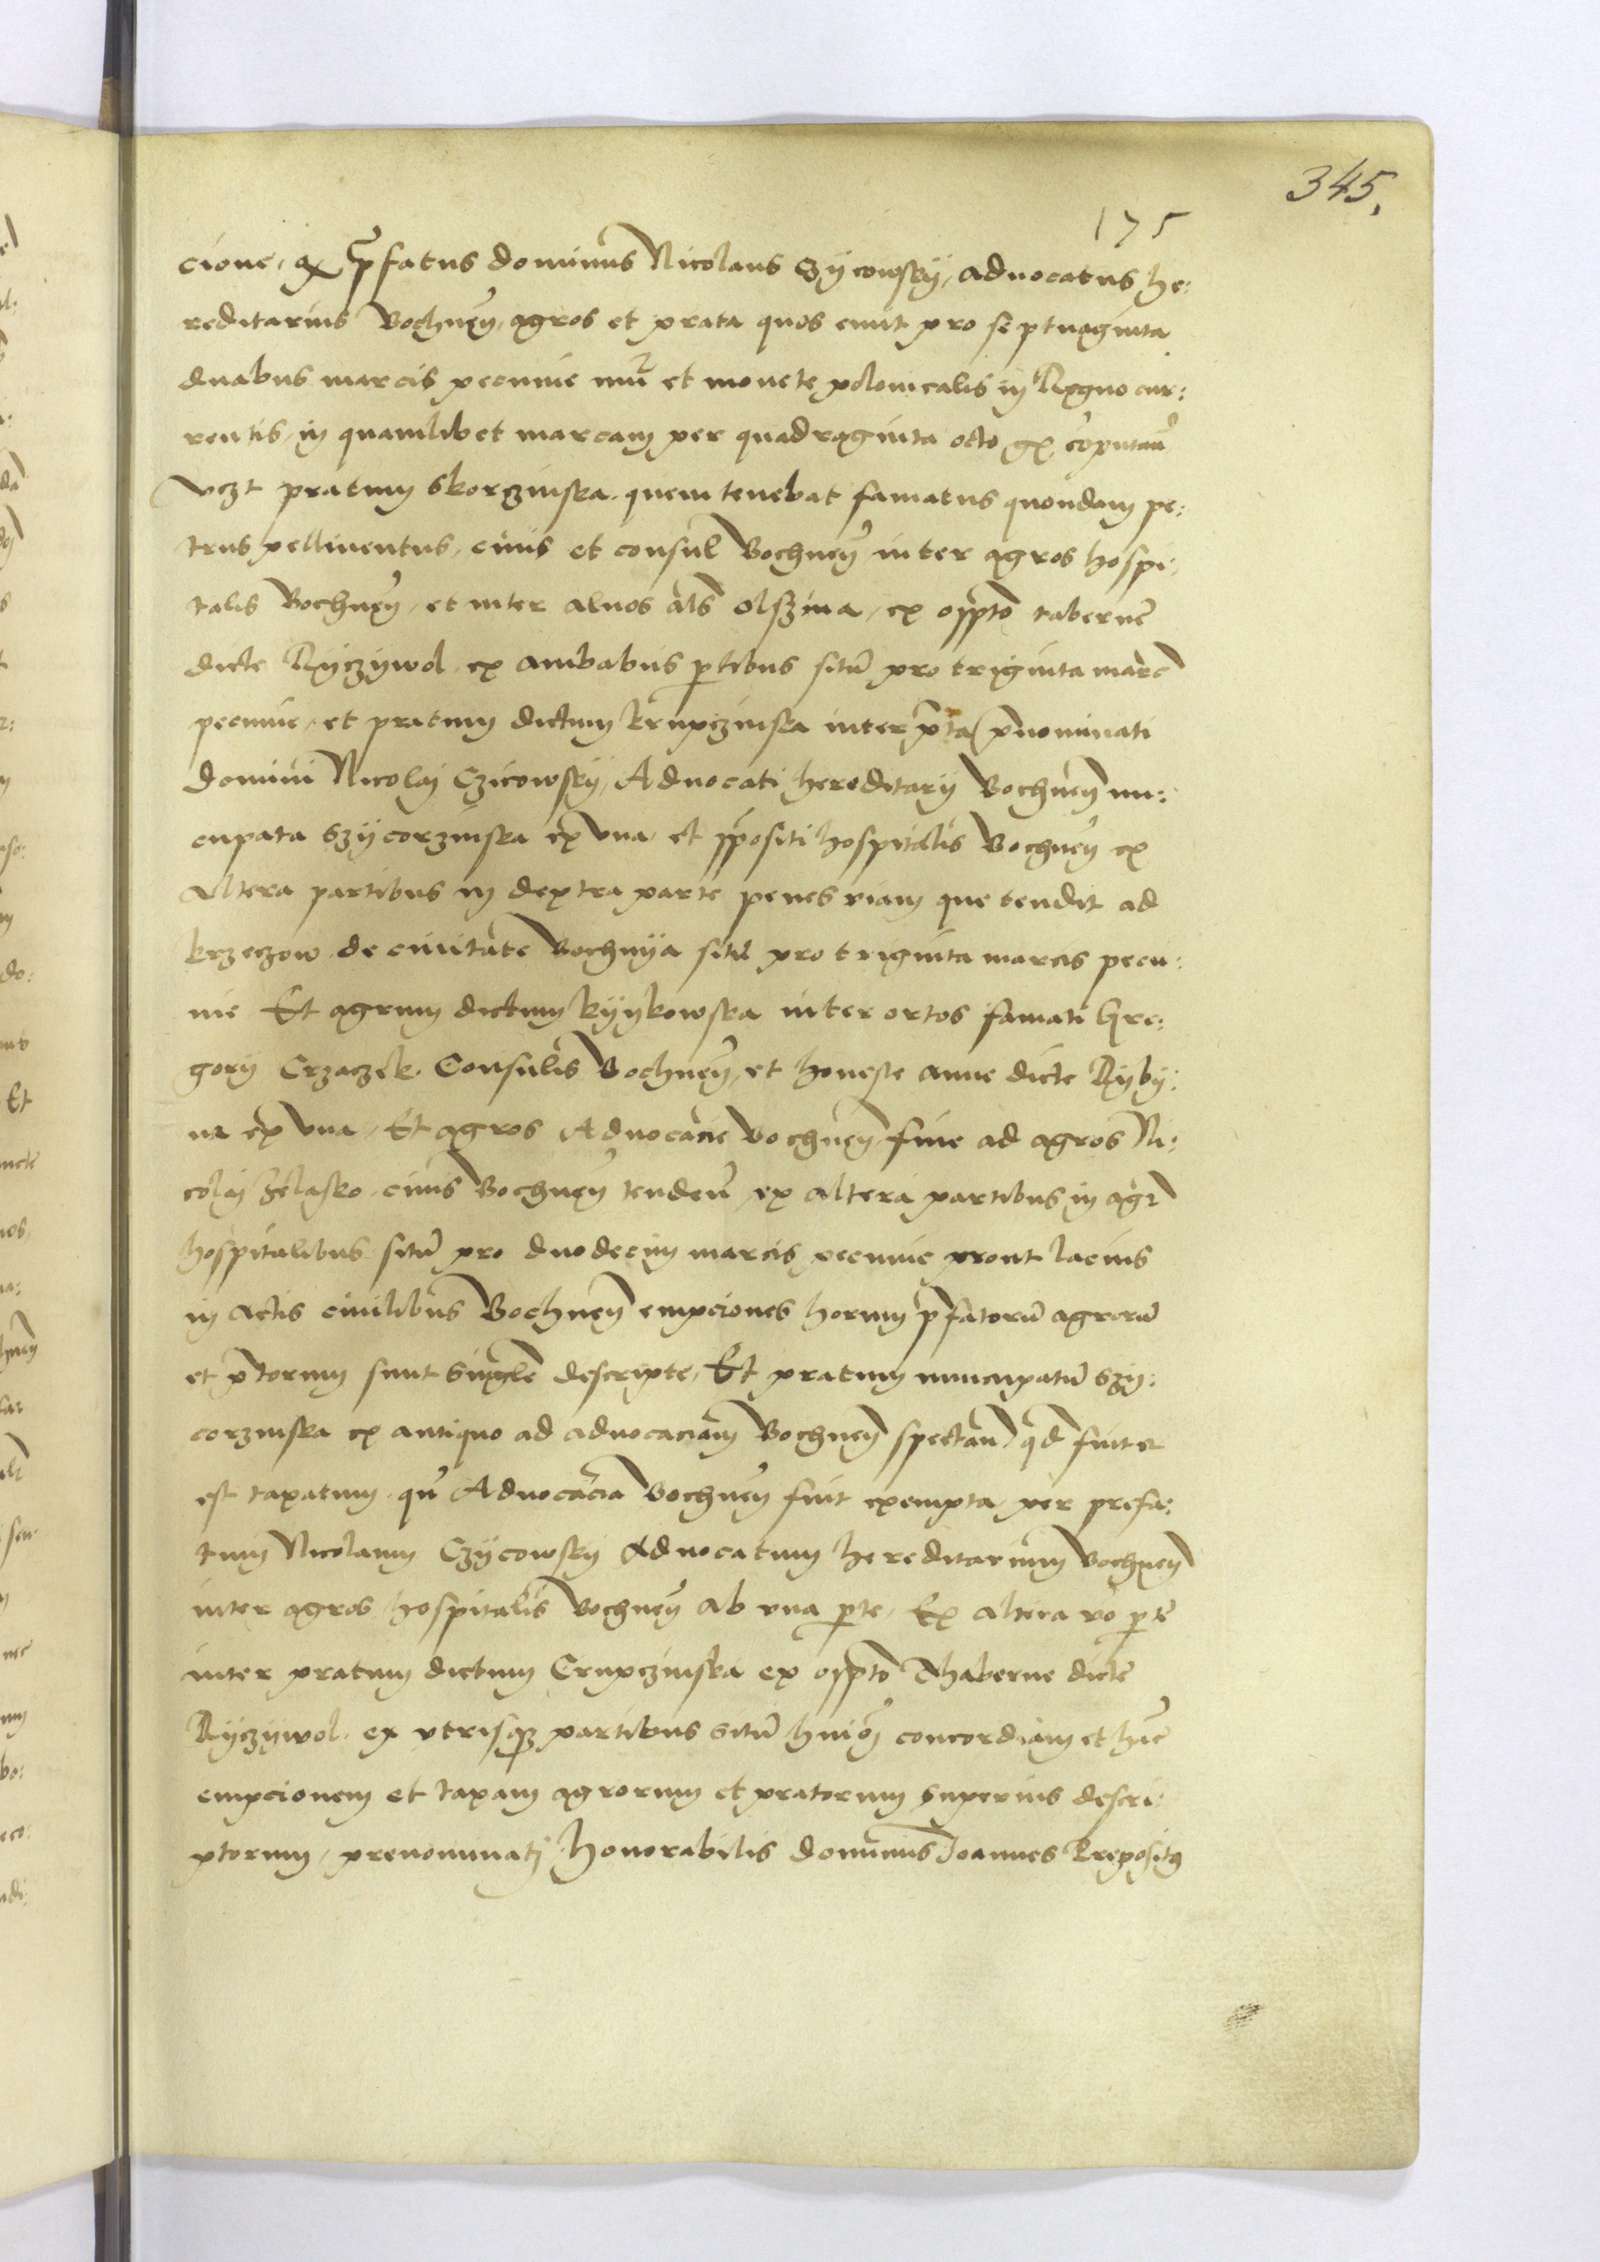 345.
175
cione, q p̄fatus dominus Nicolaus Czycowsky, aduocatus he:
reditarius Bochneñ, agros et prata quos emit pro septuaginta
duabus marcis pecunie mūr et monete polonicalis in Regno cur:
rentis, in quamlibet marcam per quadraginta octo gr̄ cōputañ
vczt pratum Skorzinska, quem tenebat famatus quondam pe:
trus pellinentus, ciuis et consul Bochneñ inter agros hospi,
talis Bochneñ, et inter alnos al̄s olszina, ex opp̄to taberne
dicte Ryczywol ex ambabus p̄tibus sitū pro triginta marc̄
pecunie, et pratum dictum krupczinska inter p̄ta p̄nominati
domini Nicolai Czicowsky, Aduocati hereditarij Bochneñ nu:
cupata Szycorzinska ex vna, et p̄positi hospitalis Bochneñ ex
Altera partibus in dextra parte penes viam que tendit ad
krzeczow de ciuitate Bochnya sitū pro triginta marcis pecu:
nie Et agrum dictum kyykowska inter ortos famati Gre:
gorij Crzaczek Consulis Bochneñ, et honeste anne dicte Ryby:
na ex vna, Et agros Aduocacie Bochneñ siue ad agros Ni:
colai Zelasko, ciuis Bochneñ tendeñ, ex altera partibus in agr̄
hospitalibus sitū pro duodecim marcis pecunie prout lacius
in actis ciuilibus Bochneñ empciones horum p̄fatorū agrorū
et p̄torum sunt singl̄e descripte, Et pratum nuncupatū Szy:
corzinska ex antiquo ad aduocaciam Bochneñ spectañ, qd̄ fuit et
est taxatum qñ Aduocacia Bochneñ fuit exempta, per prefa:
tum Nicolaum Czycowsky Aduocatum hereditarium Bochneñ
inter agros hospitalis Bochneñ ab vna p̄te, Ex altera vō p̄te
inter pratum dictum Crupczinska ex opp̄to Thaberne dicte
Ryczywol, ex vtrisq̄ partibus sitū huiōi concordiam et hāc
empcionem et taxam agrorum et pratorum superius descri:
ptorum, prenominati Honorabilis dominus Joannes Prepositus